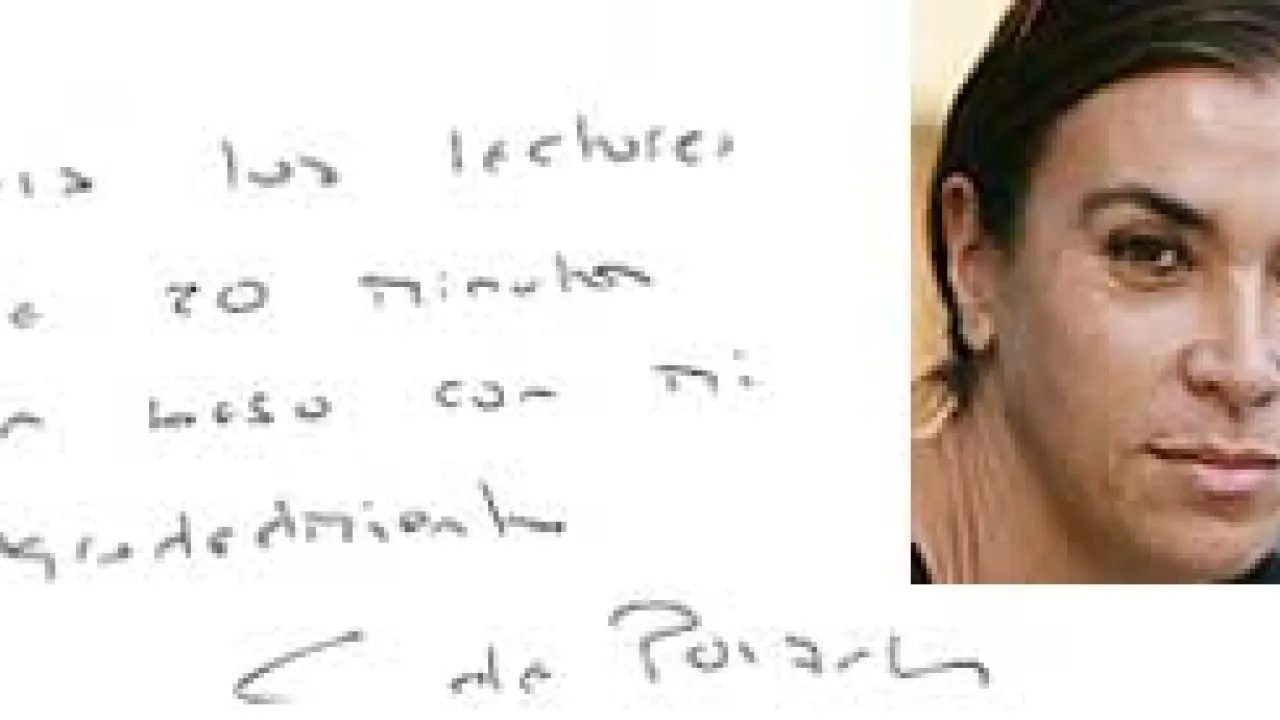 los lectores
20 minutos
beso con mi
agradedmiento
C de